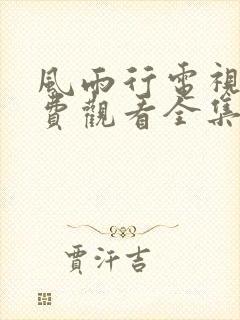 風雨行電視
費觀看全集
賈汗吉